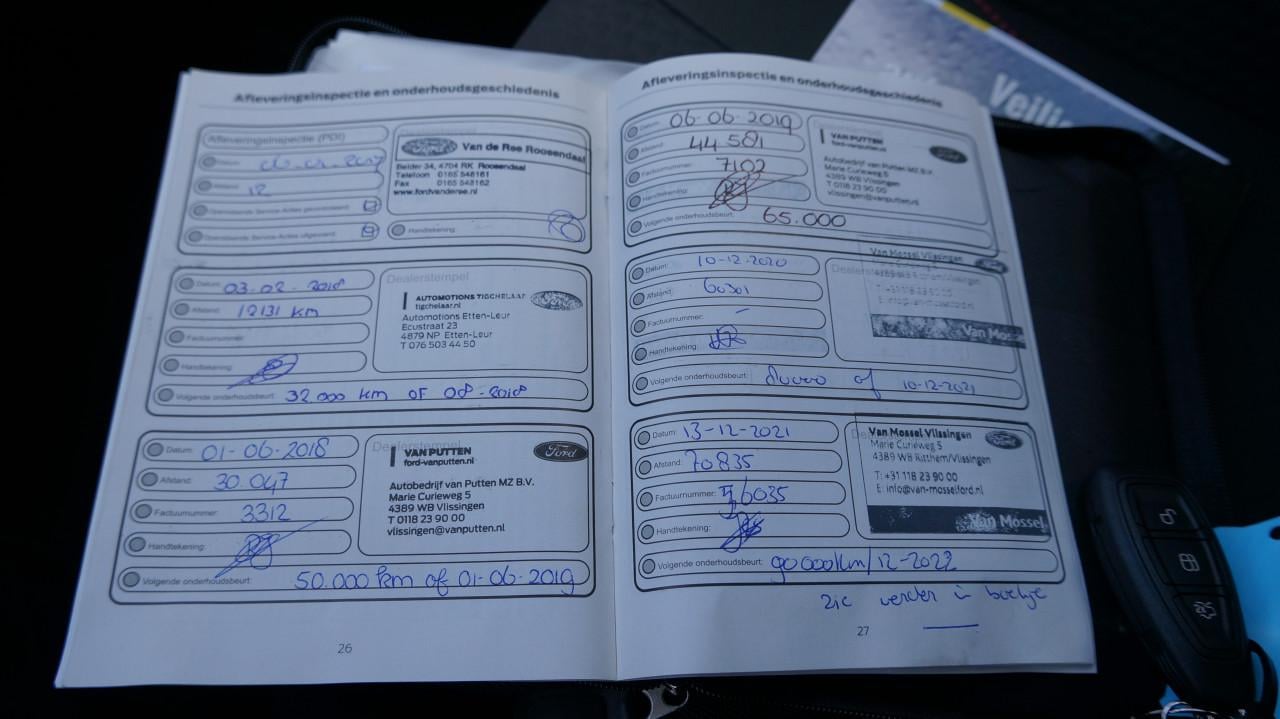 Afleveringsinspectie en onderhoudsgeschiedenis
Afleveringsinspectie (PDI)
Datum:
12
Handtekening:
Ford
Van de Ree Roosendaal
Belder 34, 4704 RK Roosendaal
Telefoon 0165 548161
Fax 0165 548162
www.fordvanderee.nl
Datum: 03-02-2018
Afstand: 12131 km
Factuurnummer:
Handtekening:
Volgende onderhoudsbeurt: 32.000 km OF 08-2018
Dealerstempel
AUTOMOTIONS TIGCHELAAR
tigchelaar.nl
Automotions Etten-Leur
Ecustraat 23
4879 NP Etten-Leur
T 076 503 44 50
Datum: 01-06-2018
Afstand: 30.047
Factuurnummer: 3312
Handtekening:
Volgende onderhoudsbeurt: 50.000 km of 01-06-2019
Dealerstempel
VAN PUTTEN
ford-vanputten.nl
Ford
Autobedrijf van Putten MZ B.V.
Marie Curieweg 5
4389 WB Vlissingen
T 0118 23 90 00
vlissingen@vanputten.nl
26
Afleveringsinspectie en onderhoudsgeschiedenis
Datum: 06-06-2019
Afstand: 44581
Factuurnummer: 7102
Handtekening:
Volgende onderhoudsbeurt: 65.000
VAN PUTTEN
ford-vanputten.nl
Ford
Autobedrijf van Putten MZ B.V.
Marie Curieweg 5
4389 WB Vlissingen
T 0118 23 90 00
vlissingen@vanputten.nl
Datum: 10-12-2020
Afstand: 60301
Factuurnummer: -
Handtekening:
Volgende onderhoudsbeurt: 80000 of 10-12-2021
Van Mossel Vlissingen
Van Mossel
Datum: 13-12-2021
Afstand: 70835
Factuurnummer:
Handtekening:
Volgende onderhoudsbeurt: 90000km/12-2022
Van Mossel Vlissingen
Marie Curieweg 5
4389 WB Ritthem/Vlissingen
T: +31 118 23 90 00
E: info@van-mosselford.nl
Van Mossel
Zie verder in boekje
27